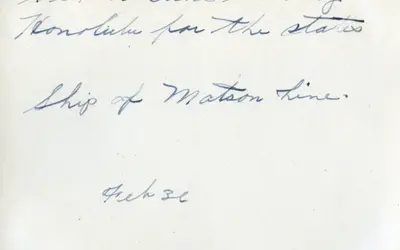 Honolulu for the states
Ship of Matson Line.
Feb 36